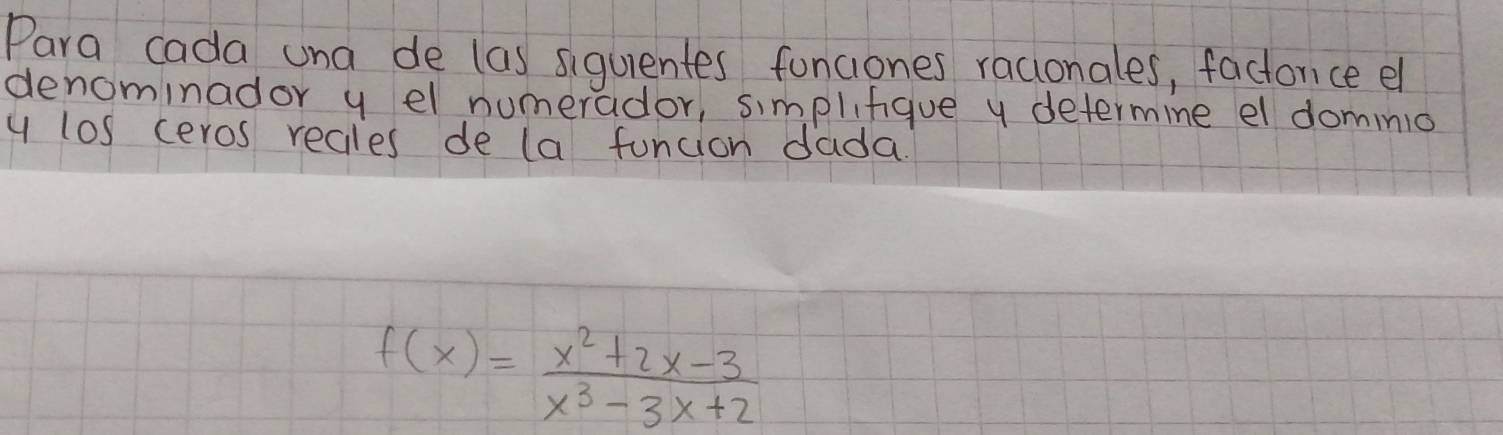 Para cada una de las siguientes funciones racionales, factorice el
denominador y el numerador, simplifique y determine el dominio
y los ceros reales de la funcion dada.
f(x) = \frac{x^2+2x-3}{x^3-3x+2}